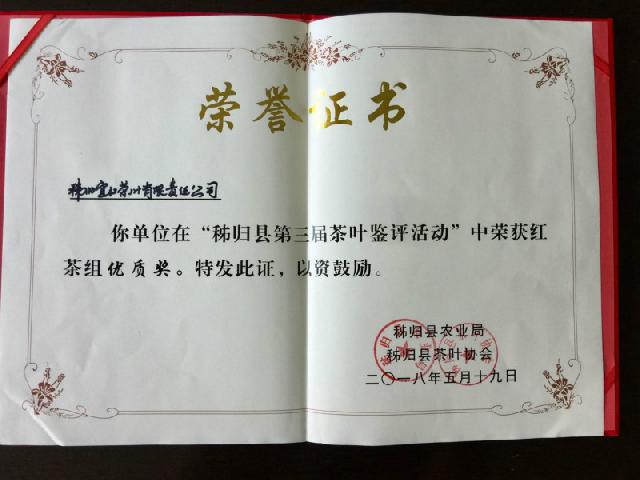 荣誉证书
有限责任公司
你单位在“秭归县第三届茶叶鉴评活动”中荣获红
茶组优质奖。特发此证，以资鼓励。
秭归县农业局
秭归县茶叶协会
二〇一八年五月十九日